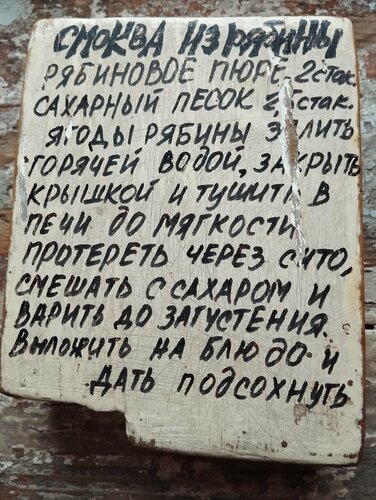 СМОКВА ИЗ РЯБИНЫ
РЯБИНОВОЕ ПЮРЕ 2 стак.
САХАРНЫЙ ПЕСОК 2,5 стак.
ЯГОДЫ РЯБИНЫ ЗАЛИТЬ
ГОРЯЧЕЙ ВОДОЙ, ЗАКРЫТЬ
КРЫШКОЙ И ТУШИТЬ В
ПЕЧИ ДО МЯГКОСТИ
ПРОТЕРЕТЬ ЧЕРЕЗ СИТО,
СМЕШАТЬ С САХАРОМ И
ВАРИТЬ ДО ЗАГУСТЕНИЯ.
ВЫЛОЖИТЬ НА БЛЮДО И
ДАТЬ ПОДСОХНУТЬ